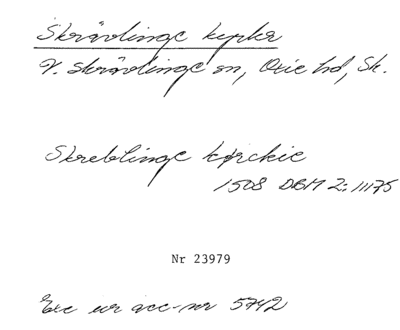 Skrävlinge kyrka
V. Skrävlinge sn, Oxie hd, Sk.
Skreblinge kyrckie
1508 DBM 2: 11175
Nr 23979
Exc ur acc-nr 5742